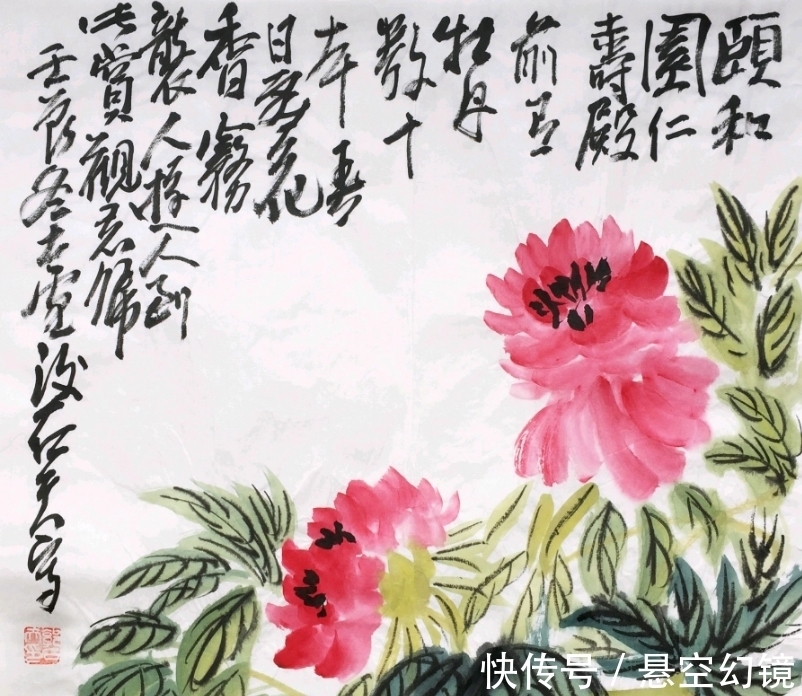 頤和
園仁
壽殿
前有
牡丹
數十
本春
日花
香霧
襲人遊人到
此賞觀忘歸
壬辰冬
快传号 / 悬空幻镜